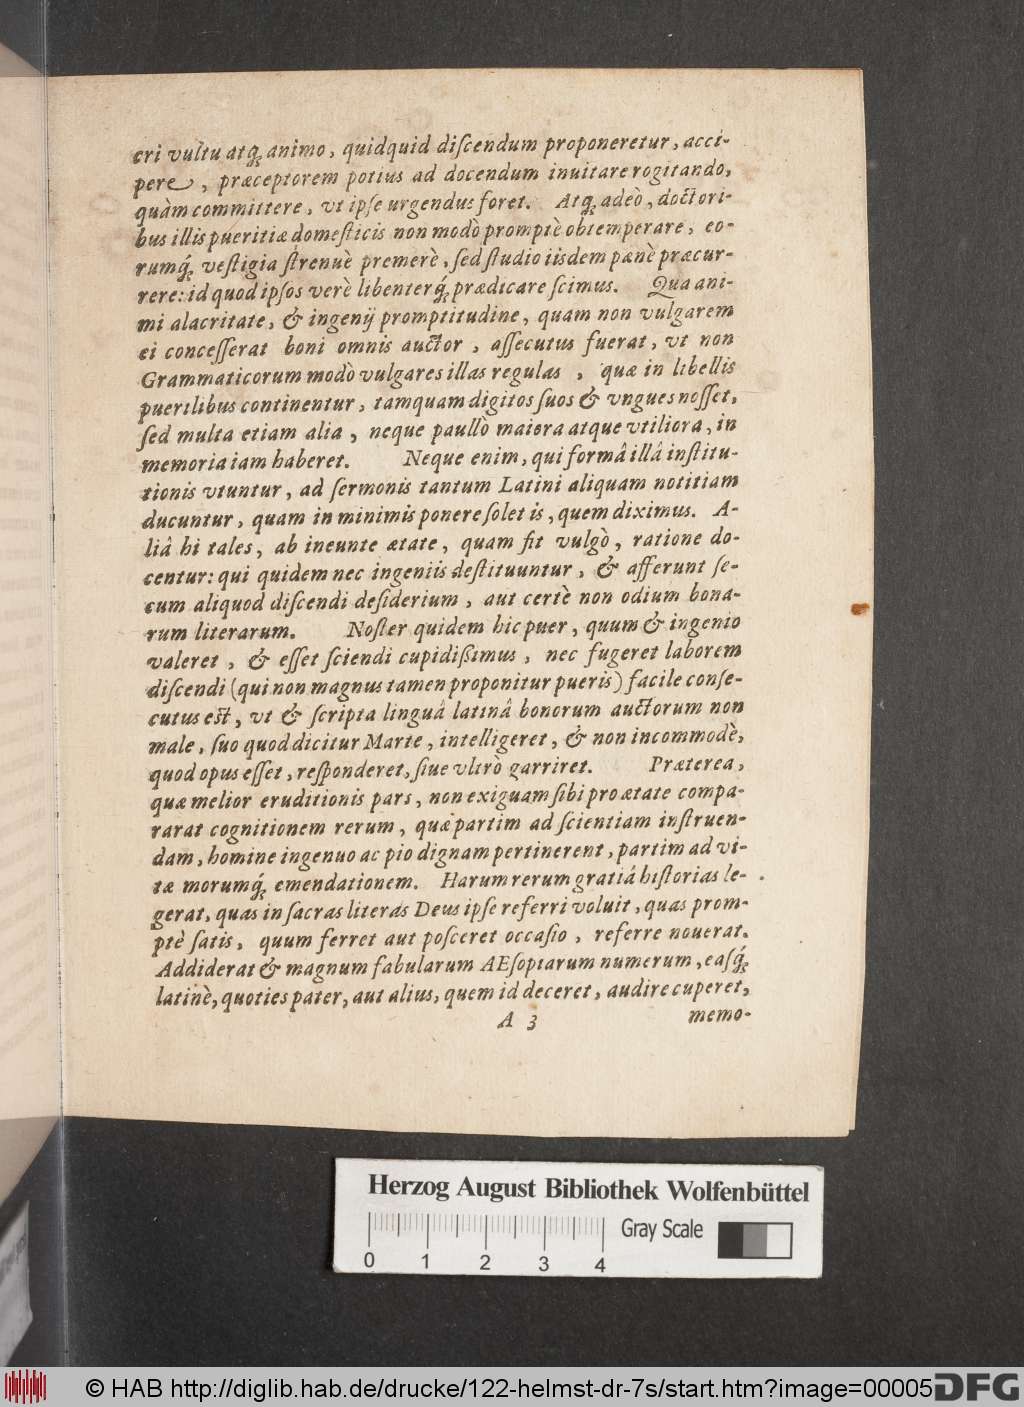 cri vultu atq́; animo, quidquid diſcendum proponeretur, acci-
pere, præceptorem potius ad docendum inuitare rogitando,
quàm committere, vt ipſe urgendus foret. Atq́; adeò, doctori-
bus illis pueritiæ domeſticis non modò promptè obtemperare, eo-
rumq́; veſtigia ſtrenuè premerè, ſed ſtudio iisdem pænè præcur-
rere: id quod ipſos verè libenterq́; prædicare ſcimus. Qua ani-
mi alacritate, & ingenij promptitudine, quam non vulgarem
ei conceſſerat boni omnis auctor, aſſecutus fuerat, vt non
Grammaticorum modò vulgares illas regulas, quæ in libellis
puerilibus continentur, tamquam digitos ſuos & vngues noſſet,
ſed multa etiam alia, neque paullò maiora atque vtiliora, in
memoria iam haberet. Neque enim, qui formâ illâ inſtitu-
tionis vtuntur, ad ſermonis tantum Latini aliquam notitiam
ducuntur, quam in minimis ponere ſolet is, quem diximus. A-
liâ hi tales, ab ineunte ætate, quam fit vulgò, ratione do-
centur: qui quidem nec ingeniis deſtituuntur, & afferunt ſe-
cum aliquod diſcendi deſiderium, aut certè non odium bona-
rum literarum. Noſter quidem hic puer, quum & ingenio
valeret, & eſſet ſciendi cupidißimus, nec fugeret laborem
diſcendi (qui non magnus tamen proponitur pueris) facile conſe-
cutus est, vt & ſcripta linguâ latinâ bonorum auctorum non
male, ſuo quod dicitur Marte, intelligeret, & non incommodè,
quod opus eſſet, reſponderet, ſiue vltrò garriret. Præterea,
quæ melior eruditionis pars, non exiguam ſibi pro ætate compa-
rarat cognitionem rerum, quæ partim ad ſcientiam inſtruen-
dam, homine ingenuo ac pio dignam pertinerent, partim ad vi-
tæ morumq́; emendationem. Harum rerum gratiâ hiſtorias le-
gerat, quas in ſacras literas Deus ipſe referri voluit, quas prom-
ptè ſatis, quum ferret aut poſceret occaſio, referre nouerat.
Addiderat & magnum fabularum AEſopiarum numerum, eaſq́;
latinè, quoties pater, aut alius, quem id deceret, audire cuperet,
A 3 memo-
Herzog August Bibliothek Wolfenbüttel
Gray Scale
0 1 2 3 4
© HAB http://diglib.hab.de/drucke/122-helmst-dr-7s/start.htm?image=00005
DFG